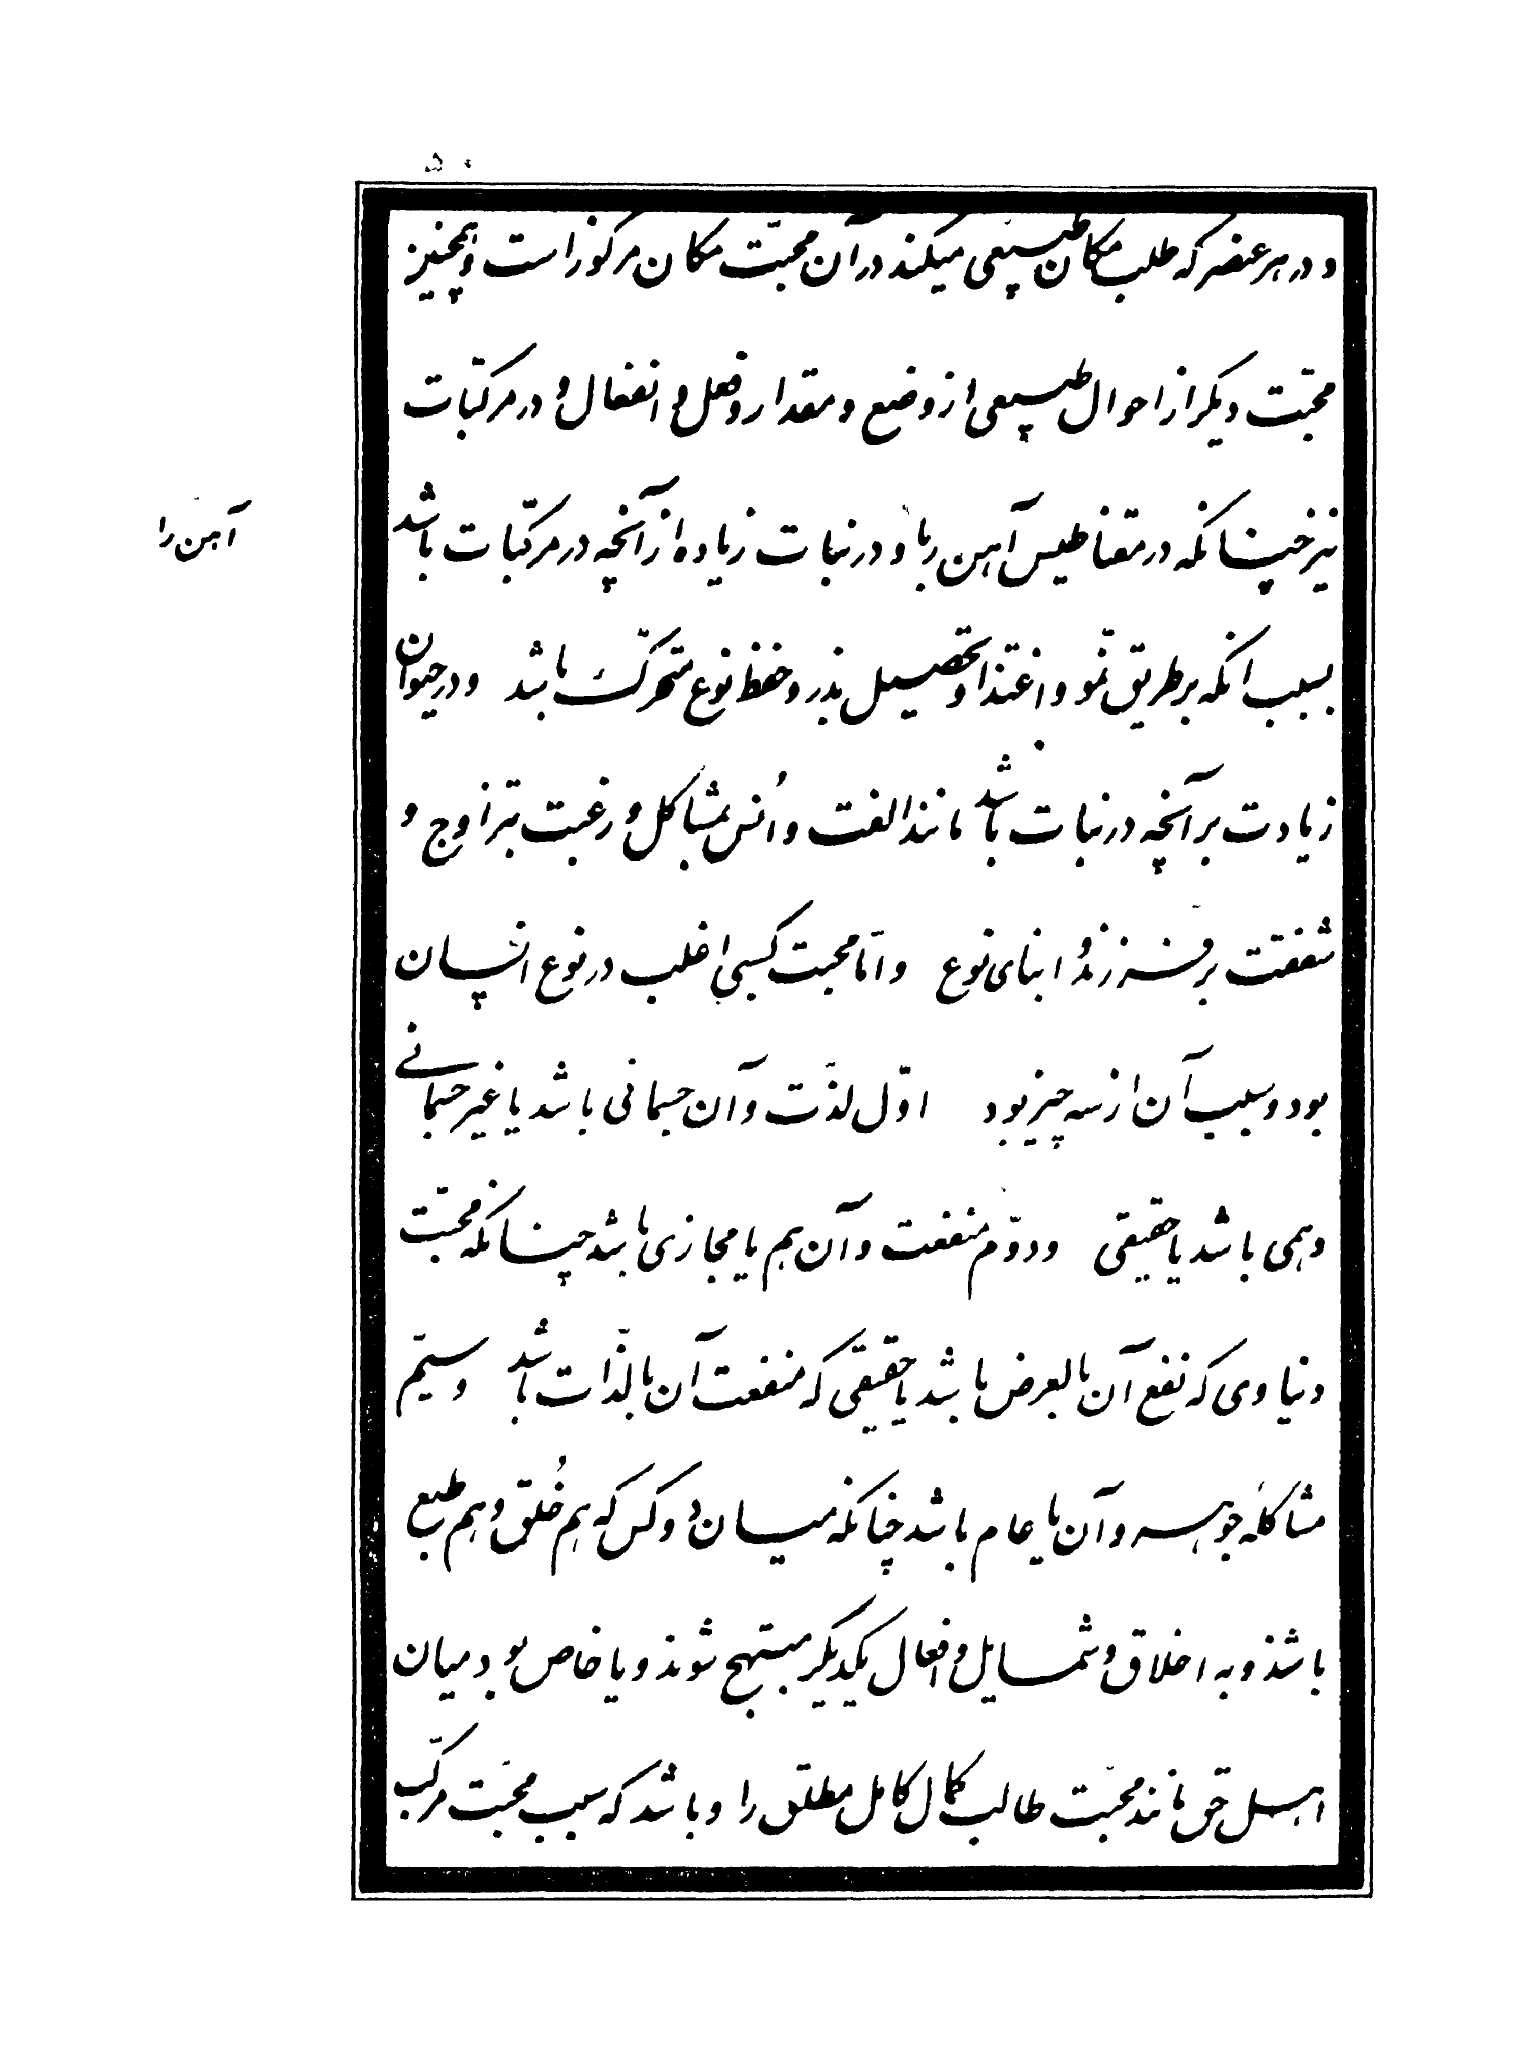 ۵۰
و در هر عنصر که طلب مکان طبیعی میکند در آن محبّت مکان مرکوز است و همچنین
محبّت دیگر از احوال طبیعی از وضع و مقدار و فعل و انفعال و در مرکّبات
نیز چنانکه در مقناطیس آهن ربا و در نبات زیاده از آنچه در مرکّبات باشد
آهن را
بسبب انکه بر طریق نموّ و اغتذا و تحصیل بذر و حفظ نوع متحرّک باشد و در حیوان
زیادت بر آنچه در نبات باشد مانند الفت و اُنس بمشاکل و رغبت بتزاوج و
شفقت بر فرزند و ابنای نوع و امّا محبت کسبی اغلب در نوع انسان
بود و سبب آن از سه چیز بود اوّل لذّت و آن جسمانی باشد یا غیر جسمانی
وهمی باشد یا حقیقی و دوّم منفعت و آن هم یا مجازی باشد چنانکه محبّت
دنیاوی که نفع آن بالعرض باشد یا حقیقی که منفعت آن بالذّات باشد و سیّم
مشاکله جوهر و آن یا عام باشد چنانکه میان دو کس که هم خُلق و هم طبع
باشند و به اخلاق و شمایل و افعال یکدیگر مبتهج شوند و یا خاص بود میان
اهل حق مانند محبّت طالب کمال کامل مطلق را و باشد که سبب محبّت مرکّب